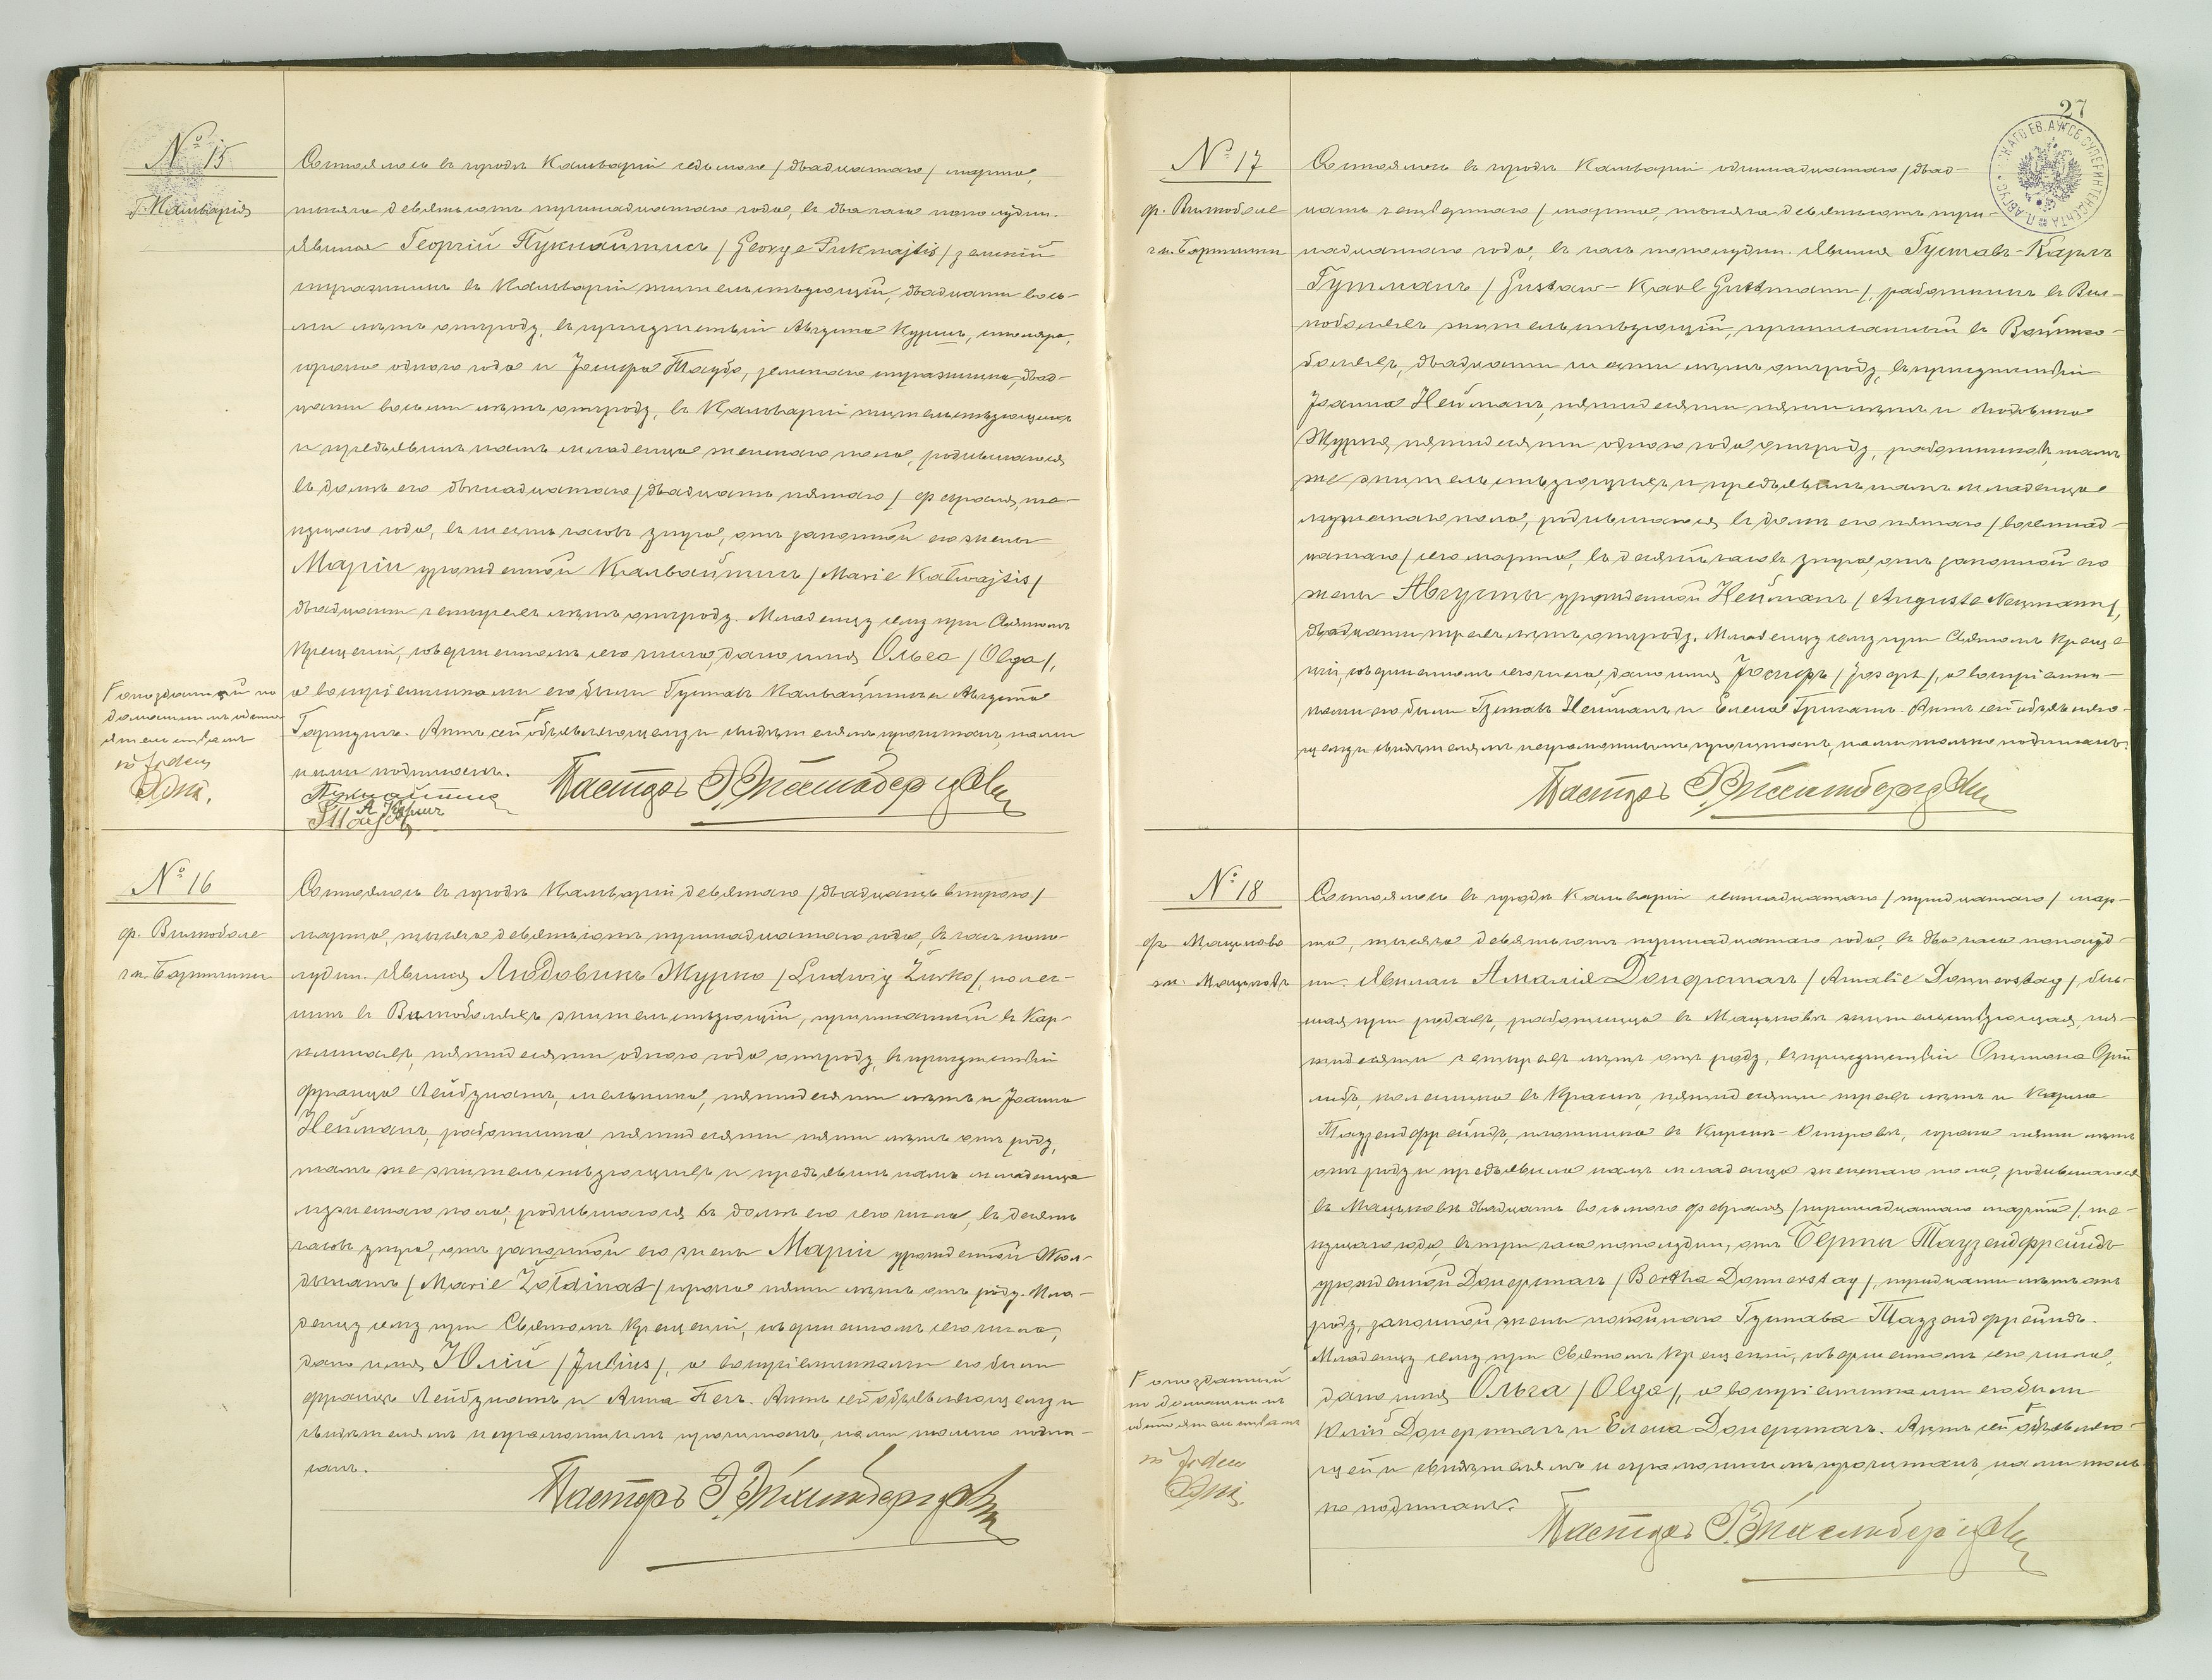 № 15
г. Кальварія
Состоялось въ городѣ Кальваріи седьмого /двадцатаго/ марта,
тысяча девятьсотъ тринадцатаго года, въ два часа пополудни.
Явился Георгій Пукнайтисъ /George Puknajtis/ земскій
стражникъ въ Кальваріи жительствующій, двадцати вось-
ми лѣтъ отъ роду, въ присутствіи Августа Куршъ, столяра,
сорока одного года и Іосифа Таубо, земскаго стражника, двад-
цати восьми лѣтъ отъ роду, въ Кальваріи жительствующихъ
и предъявилъ намъ младенца женскаго пола, родившагося
въ домѣ его двѣнадцатаго /двадцать пятаго/ февраля, те-
кущаго года, въ шесть часовъ утра, отъ законной его жены
Маріи урожденной Кальвайтисъ /Marie Kalwajtis/
двадцати четырехъ лѣтъ отъ роду. Младенцу сему при Святомъ
Крещеніи, совершенномъ сего числа, дано имя Ольга /Olga/,
а воспріемниками его были Густавъ Кальвайтисъ и Августа
Актъ сей объявляющему и свидѣтелямъ прочитанъ, нами
и ими подписанъ.
Пукнайтисъ
А Куршъ
Пасторъ
Г опозданный по
домашнимъ обсто-
ятельствамъ
№ 16
ф. Вилкоболе
гм. Бартники
Состоялось въ городѣ Кальваріи девятаго /двадцать второго/
марта, тысяча девятьсотъ тринадцатаго года, въ часъ попо-
лудни. Явился Людовикъ Журко /Ludwig Żurko/, колес-
никъ въ Вилкоболяхъ жительствующій, приписанный въ Кар-
пятидесяти одного года отъ роду, въ присутствіи
Франца Лейбзнатъ, мельника, пятидесяти лѣтъ и Іоанна
Нейманъ, работника, пятидесяти пяти лѣтъ отъ роду,
тамъ же жительствующихъ и предъявилъ намъ младенца
мужскаго пола, родившагося въ домѣ его сего числа, въ девять
часовъ утра, отъ законной его жены Маріи урожденной Жол-
динатъ /Marie Żołdinat/ сорока пяти лѣтъ отъ роду. Мла-
денцу сему при Святомъ Крещеніи, совершенномъ сего числа,
дано имя Юлій /Julius/, а воспріемниками его были
Францъ Лейбзнатъ и Анна Актъ сей объявляющему и
свидѣтелямъ неграмотнымъ прочитанъ, нами только подпи-
санъ.
Пасторъ
27
№ 17
ф. Вилкоболе
гм. Бартники
Состоялось въ городѣ Кальваріи одиннадцатаго /двад-
цать четвертаго/ марта, тысяча девятьсотъ три-
надцатаго года, въ часъ пополудни. Явился Густавъ-Карлъ
Гутманъ /Gustaw-Karl Guttmann/, работникъ въ Вил-
коболяхъ жительствующій, приписанный въ
двадцати шести лѣтъ отъ роду, въ присутствіи
Іоанна Нейманъ, пятидесяти пяти лѣтъ и Людовика
Журко, пятидесяти одного года отъ роду, работниковъ, тамъ
же жительствующихъ и предъявилъ намъ младенца
мужскаго пола, родившагося въ домѣ его пятаго /восемнад-
цатаго/ сего марта, въ девять часовъ утра, отъ законной его
жены Августы урожденной Нейманъ /Auguste Neumann/,
двадцати трехъ лѣтъ отъ роду. Младенцу сему при Святомъ Креще
ніи, совершенномъ сего числа, дано имя Іосифъ /Josept/, а воспріемни-
ками его были Густавъ Нейманъ и Елена Гутманъ. Актъ сей объявляю-
щему и свидѣтелямъ неграмотнымъ прочитанъ, нами только подписанъ.
Пасторъ
№ 18
ф. Мацьково
гм. Мацьково
Состоялось въ городѣ Кальваріи семнадцатаго /тридцатаго/ мар-
та, тысяча девятьсотъ тринадцатаго года, въ два часа пополуд-
ни. Явилась Амалія Донерштагъ /Amalie Donnerstag/, быв-
шая при родахъ, работница въ Мацьковѣ жительствующая, пя-
тидесяти четырехъ лѣтъ отъ роду, въ присутствіи
пятидесяти трехъ лѣтъ и Карла
Таузендфрейндъ, плотника въ сорока пяти лѣтъ
отъ роду и предъявила намъ младенца женскаго пола, родившагося
въ Мацьковѣ двадцать восьмого февраля /тринадцатаго марта/, те-
кущаго года, въ три часа пополудни, отъ Берты Таузендфрейндъ
урожденной Донерштагъ /Bertha Donnerstag/, тридцати лѣтъ отъ
роду, законной жены покойнаго Густава Таузендфрейндъ.
Младенцу сему при Святомъ Крещеніи, совершенномъ сего числа,
дано имя Ольга /Olga/, а воспріемниками его были
Юлій Донерштагъ и Елена Донерштагъ. Актъ сей объявляю-
щей и свидѣтелямъ неграмотнымъ прочитанъ, нами толь-
ко подписанъ.
Пасторъ
Г опозданный
по домашнимъ
обстоятельствамъ